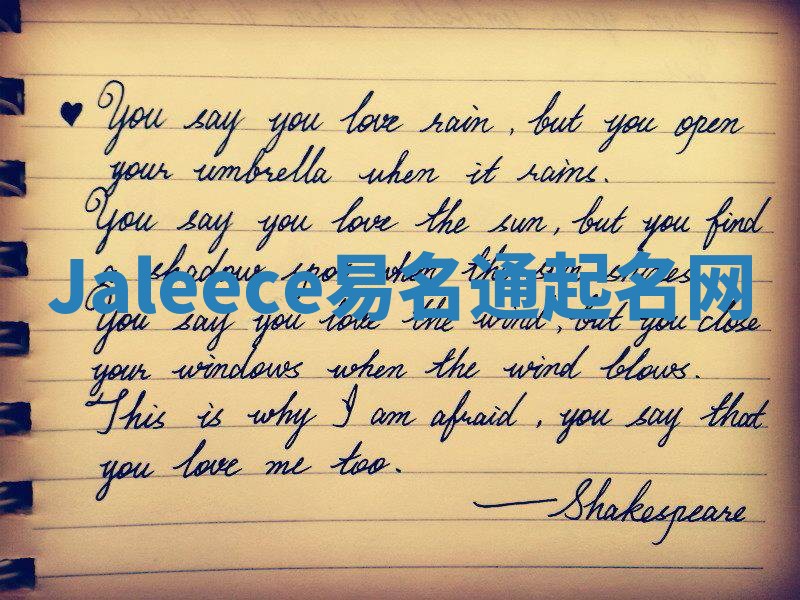 ♥ You say you love rain, but you open
your umbrella when it rains.
You say you love the sun, but you find
a shadow spot when the sun shines
Jaleece易名通起名网
You say you love the wind, but you close
your windows when the wind blows.
This is why I am afraid, you say that
you love me too.
—Shakespeare